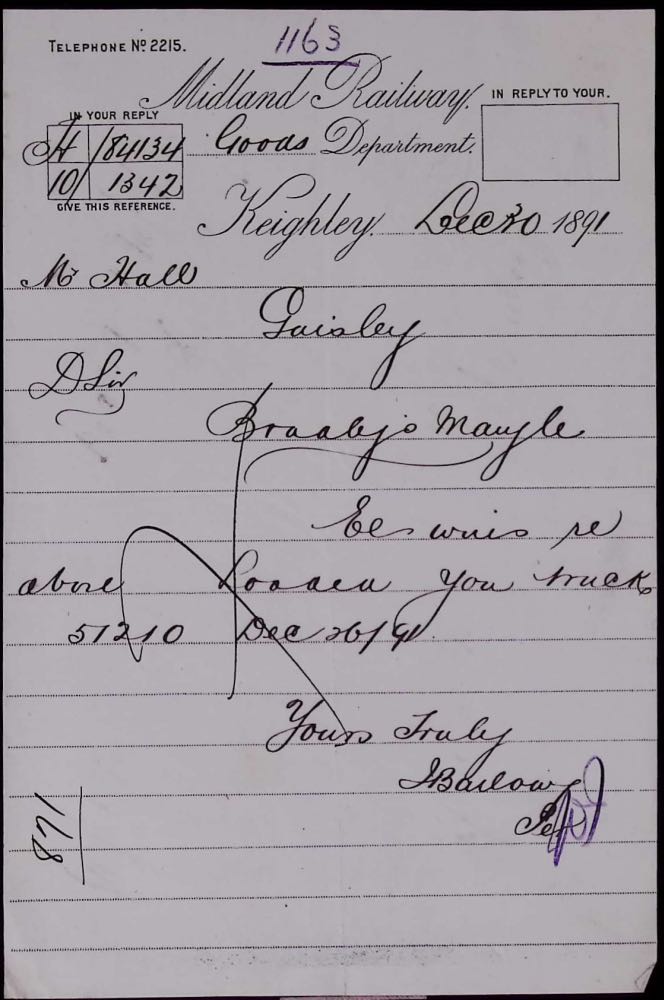 TELEPHONE No 2215.
1163
Midland Railway.
IN REPLY TO YOUR.
IN YOUR REPLY
H /84134
10/ 1342
GIVE THIS REFERENCE.
Goods Department.
Keighley. Dec 30 1891
Mr Hall
Guisley
D Sir
Mangle
wires re
above Loaded you truck
51210 Dec 26/91
Yours Truly
JBarlow
Per
871